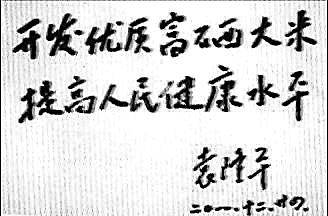 开发优质富硒大米
提高人民健康水平
袁隆平
二〇一一.十二.廿九.